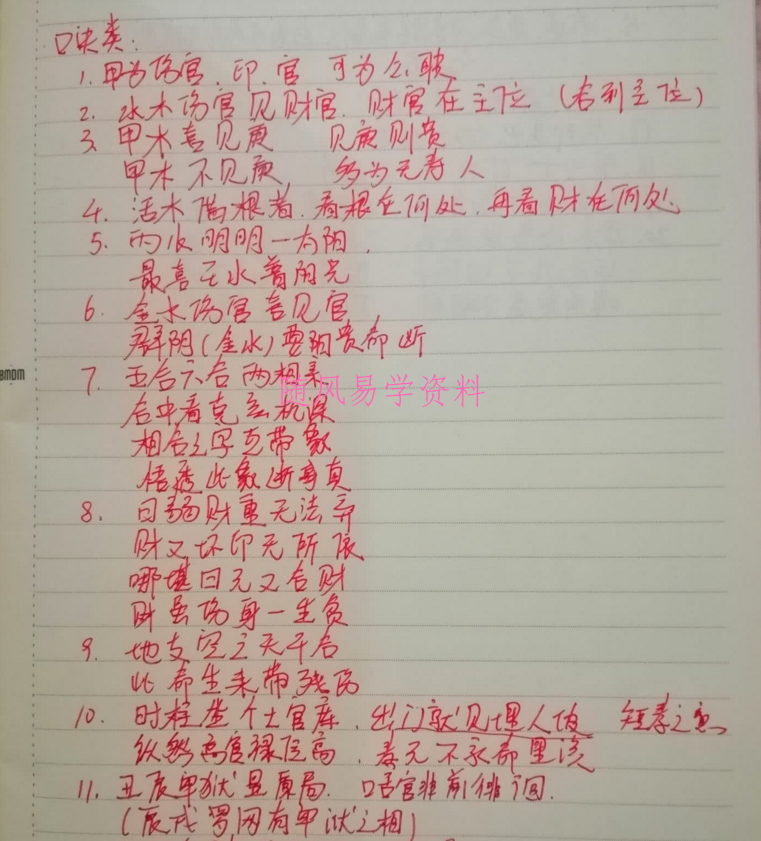 口诀类:
1. 甲为伤官、印、官 可为公职
2. 水木伤官见财官、财官在主位 (右到主位)
3. 甲木喜见庚 见庚则贵
甲木不见庚 多为无寿人
4. 活木偶根者、看根在何处、再看财在何处
5. 丙火明明一太阳、
最喜壬水著阳光
6. 金水伤官喜见官
群阴(金水)要阳贵命断
7. 五合六合两相亲
随风易学资料
合中看克玄机深
相合之字克带象
悟透此象断事真
8. 日弱财重无法弃
财又坏印无所依
哪堪日元又合财
财虽伤身一生负
9. 地支空亡天干合
此命生来带残伤
10. 时柱坐个土官库、出门就见埋人坟 短寿之忌
纵然高官禄位高、寿元不永命里该
11. 丑辰甲狱显原局、口舌官非前徘徊.
(辰戌罗网有甲狱之相)